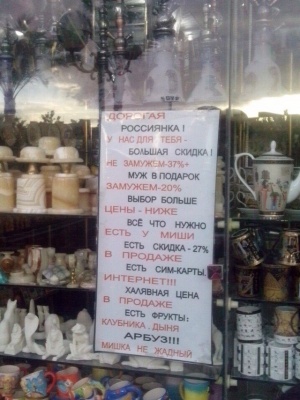 ДОРОГАЯ
РОССИЯНКА!
У НАС ДЛЯ ТЕБЯ -
БОЛЬШАЯ СКИДКА!
НЕ ЗАМУЖЕМ-37%+
МУЖ В ПОДАРОК
ЗАМУЖЕМ-20%
ВЫБОР БОЛЬШЕ
ЦЕНЫ - НИЖЕ
ВСЁ ЧТО НУЖНО
ЕСТЬ У МИШИ
ЕСТЬ СКИДКА - 27%
В ПРОДАЖЕ
ЕСТЬ СИМ-КАРТЫ,
ИНТЕРНЕТ!!!
ХАЛЯВНАЯ ЦЕНА
В ПРОДАЖЕ
ЕСТЬ ФРУКТЫ:
КЛУБНИКА , ДЫНЯ
АРБУЗ!!!
МИШКА НЕ ЖАДНЫЙ